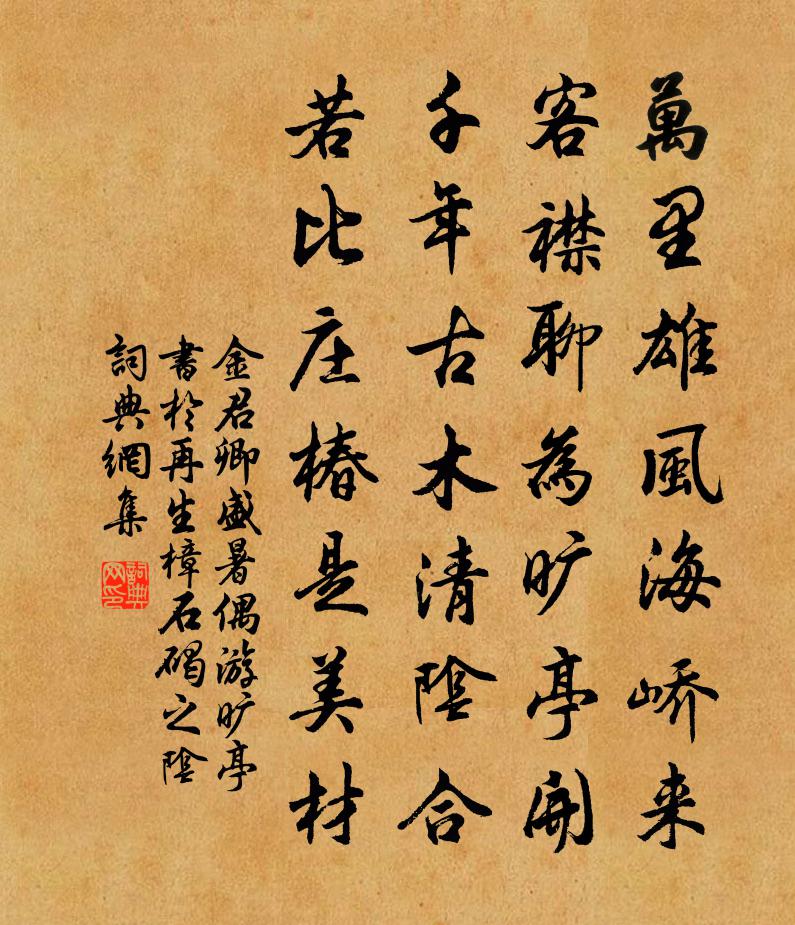 萬里雄風海嶠来
客襟聊為旷亭開
千年古木清陰合
若比庄椿是美材
金君卿盛暑偶游旷亭
書於再生樟石碣之陰
詞典網集
詞典网印